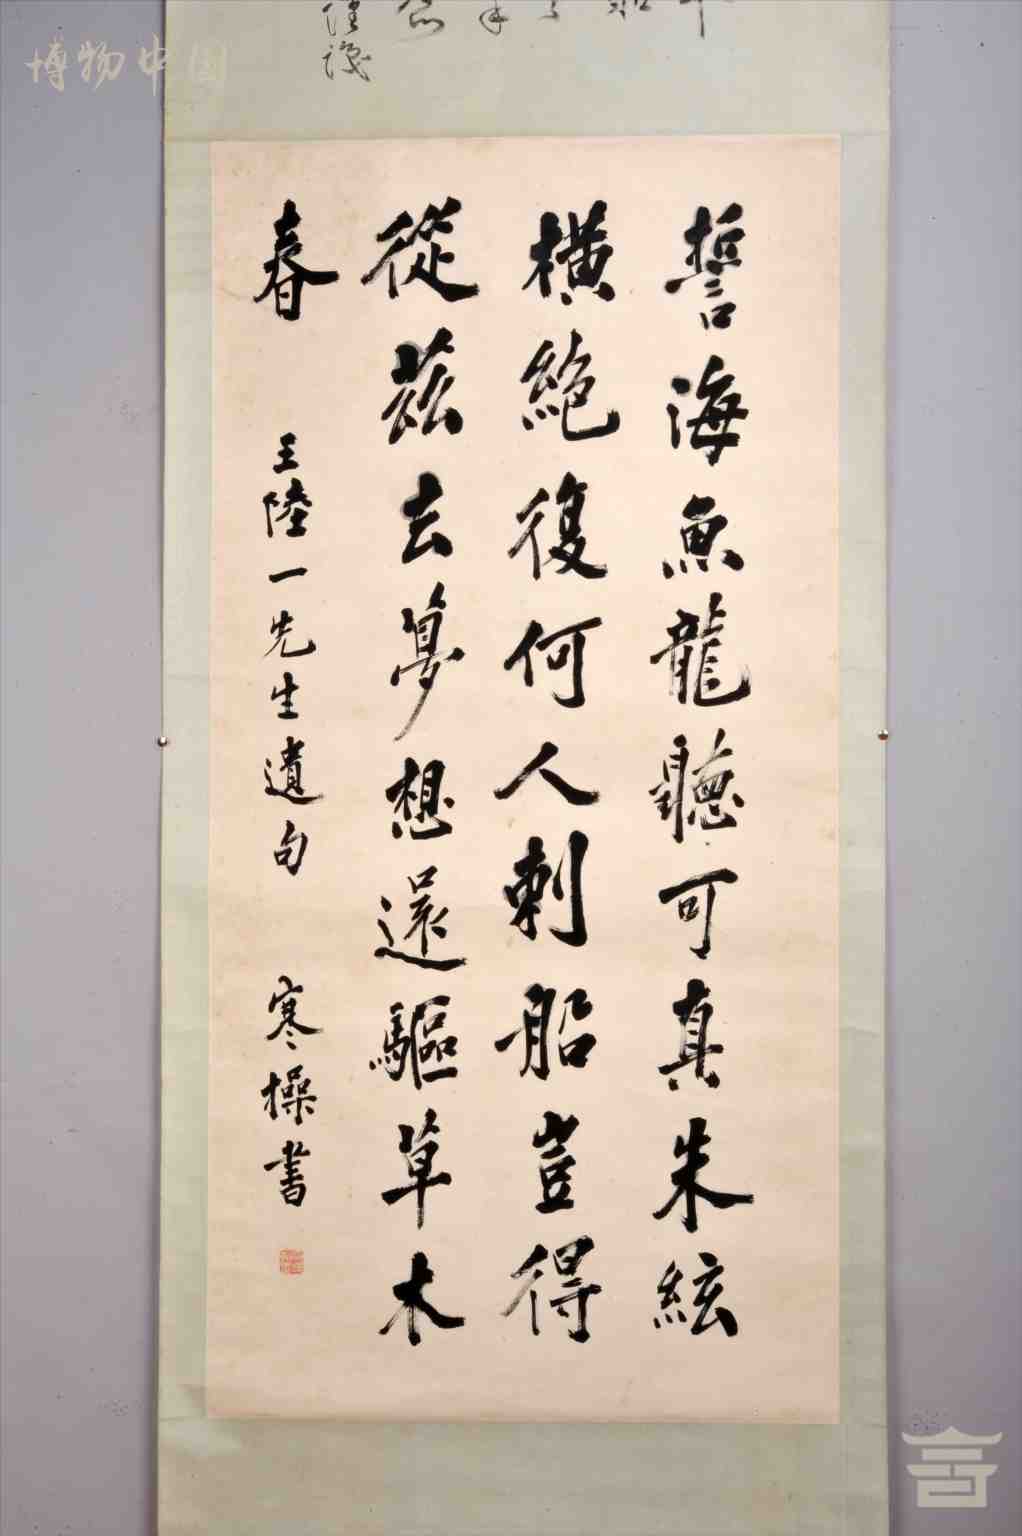 博物中国
誓海魚龍聽可真朱絃
橫絕復何人刺船豈得
從茲去夢想還驅草木
春
王陸一先生遺句
寒操書